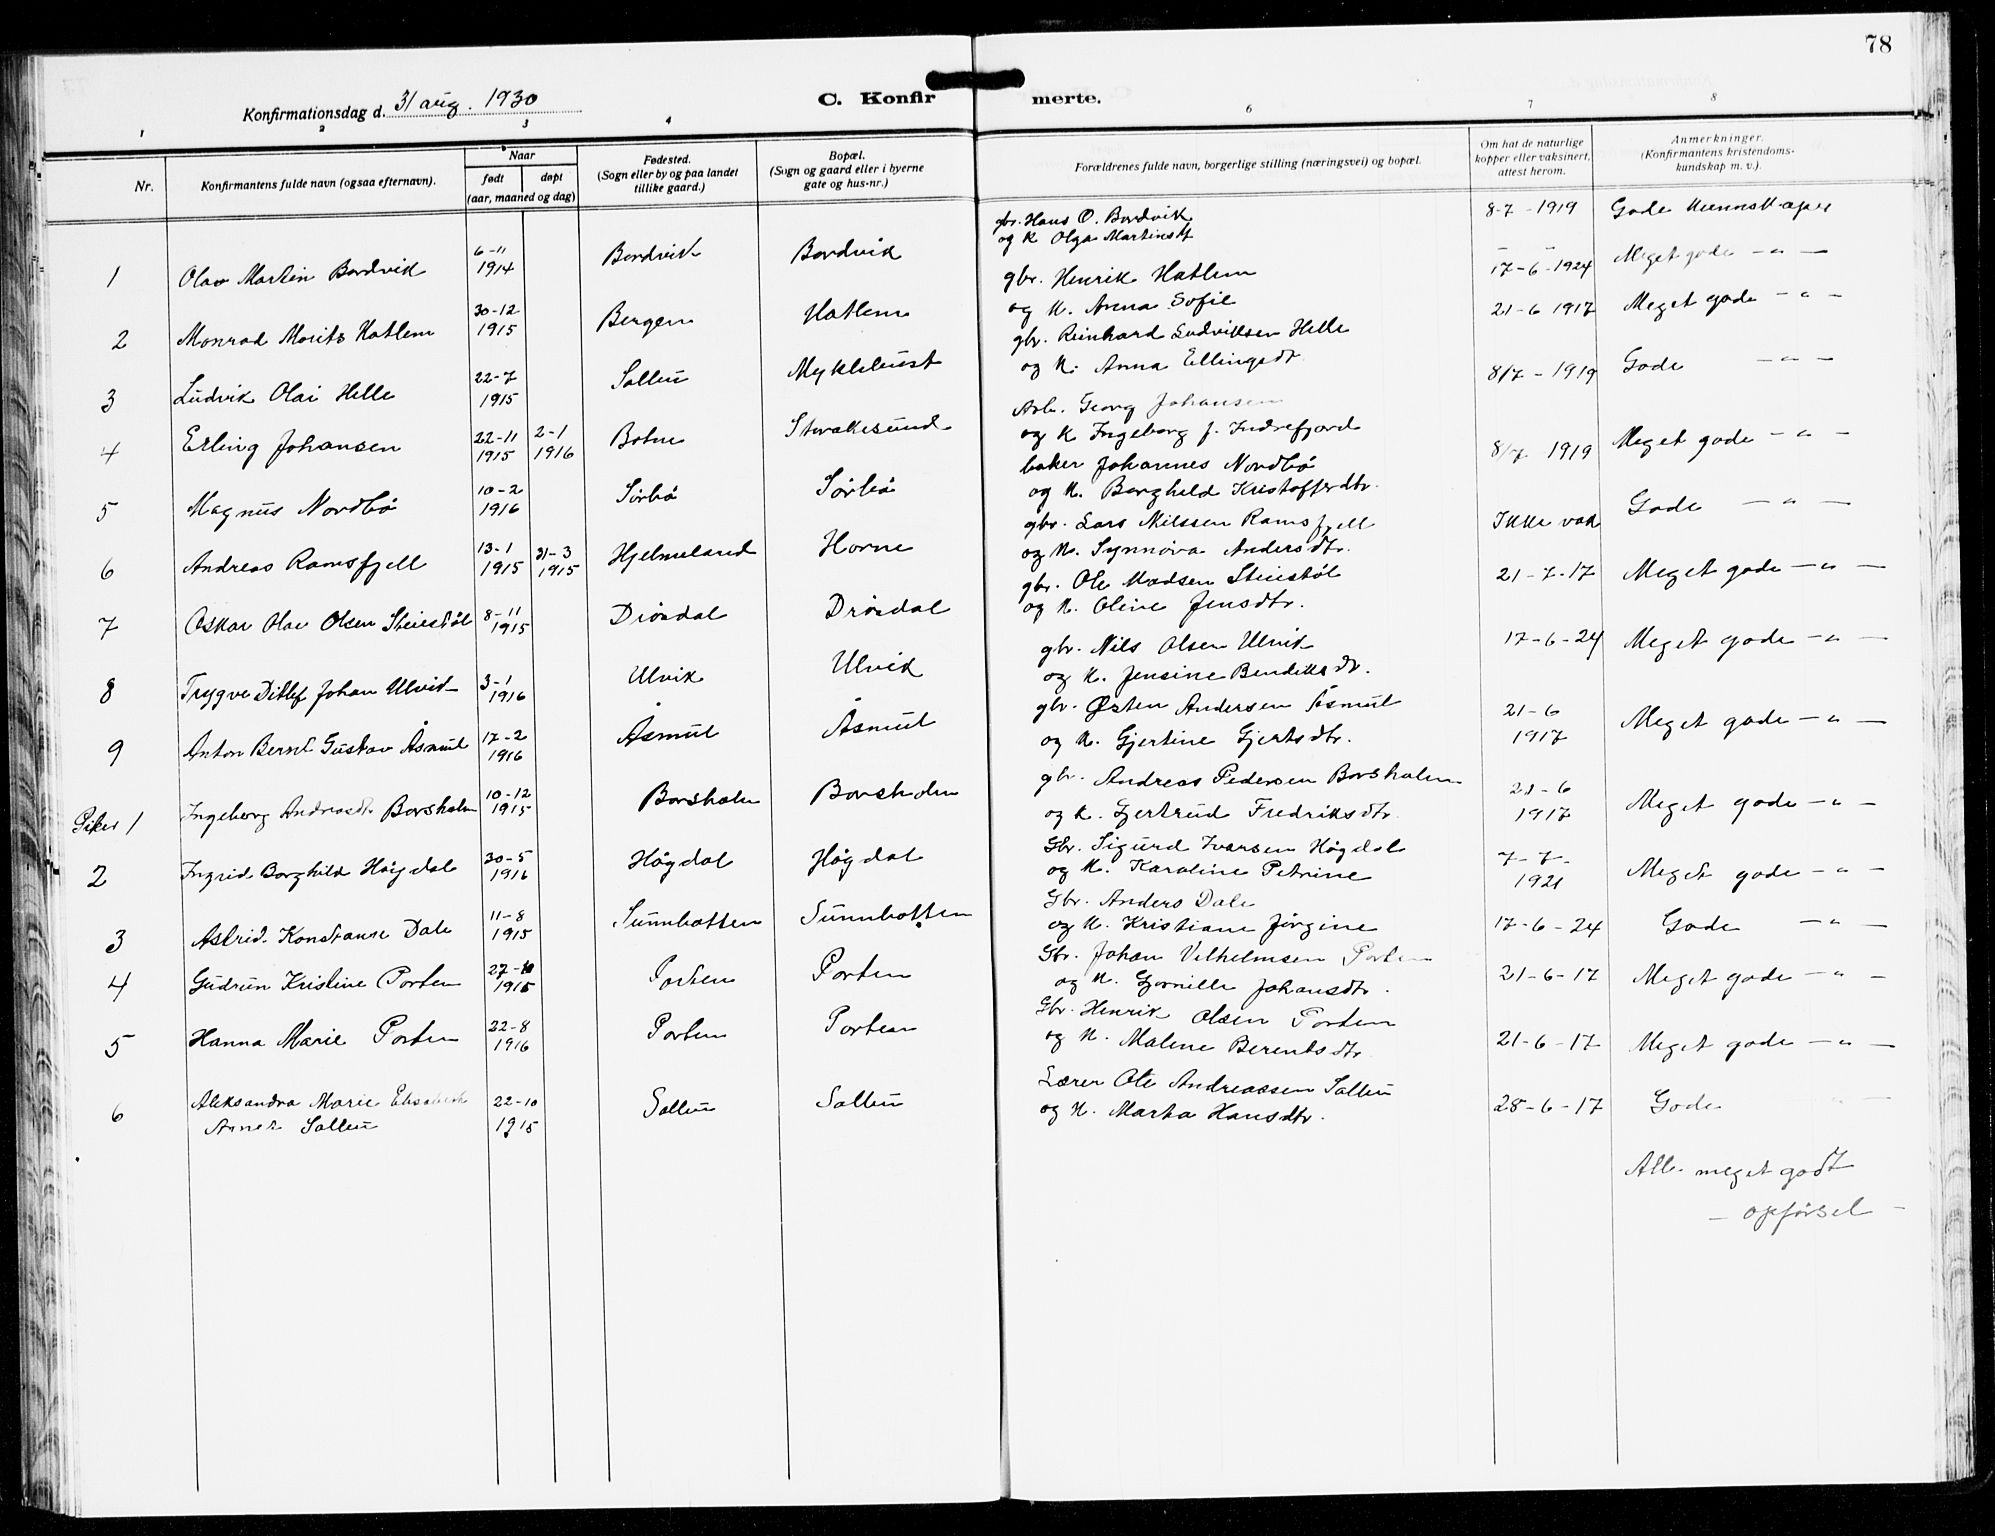 78
Konfirmationsdag d. 31 aug. 1930
C. Konfir merte.
1 2 3 4 6 7 8
Nr.
Konfirmantens fulde navn (ogsaa efternavn).
Naar
født døpt
(aar, maaned og dag)
Fødested.
(Sogn eller by og paa landet
tillike gaard.)
Bopæl.
(Sogn og gaard eller i byerne
gate og hus-nr.)
Forældrenes fulde navn, borgerlige stilling (næringsvei) og bopæl.
Om hat de naturlige
kopper eller vaksinert,
attest herom.
Anmerkninger.
(Konfirmantens kristendoms-
kundskap m. v.).
1 Olav Martin Bordvik 6-11 1914 Bordvik Bordvik
gbr. Hans O. Bordvik
og k Olga Martinsdt
8-7-1919 Gode kunnskaper
2 Monrad Morits Hatlem 30-12 1915 Bergen Hatlem
gbr. Henrik Hatlem
og k. Anna Sofie
17-6-1924 Meget gode -"-
3 Ludvik Olai Helle 22-7 1915 Solleü Myklebust
gbr. Reinhard Ludviksen Helle
og k. Anna Ellingsdt.
21-6 1917 Meget gode -"-
4 Erling Johansen 22-11 1915 2-1 1916 Botne Stvakesund
Arb. Georg Johansen
og k Ingeborg f. Indrefjord
8/7-1919 Gode -"-
5 Magnus Nordbö 10-2 1916 Sörbö Sörbö
baker Johannes Nordbö
og k. Borghild Kristofferdtr.
8/7 1919 Meget gode -"-
6 Andreas Ramsfjell 13-1 1915 31-3 1915 Hjelmeland Horne
gbr. Lars Nilssen Ramsfjell
og k. Synnöva Andersdtr.
Ikke vak Gode -"-
7 Oskar Olav Olsen Steinstöl 8-11 1915 Drösdal Drösdal
gbr. Ole Madsen Steinstöl
og k. Oline Jensdtr.
21-7-17 Meget gode -"-
8 Trygve Ditlef Johan Ulvik 3-1 1916 Ulvik Ulvik
gbr. Nils Olsen Ulvik
og k. Jensine Bendiksdt.
17-6-24 Meget gode -"-
9 Anton Bernt Gustav Åsmul 17-2 1916 Åsmul Åsmul
gbr. Østen Andersen Åsmul
og k. Gjertine Gjertsdtr.
21-6 1917 Meget gode -"-
Piker 1 Ingeborg Andreasdt. Borsholm 10-12 1915 Borsholm Borsholm
gbr. Andreas Pedersen Borsholm
og k. Gjertrud Fredriksdtr.
21-6 1917 Meget gode -"-
2 Ingrid Borghild Högdal 30-5 1916 Högdal Högdal
Gbr. Sigurd Ivarsen Högdal
og k. Karoline Petrine
7-7- 1921 Meget gode -"-
3 Astrid Konstanse Dale 11-8 1915 Sunnbotten Sunnbotten
Gbr. Anders Dale
og k. Kristiane Jörgine
17-6-24 Gode -"-
4 Gudrun Kristine Porten 27-10 1915 Porten Porten
Gbr. Johan Vilhelmsen Porten
og k. Gornille Johansdtr.
21-6-17 Meget gode -"-
5 Hanna Marie Porten 22-8 1916 Porten Porten
Gbr. Henrik Olsen Porten
og k. Malene Berentsdtr
21-6-17 Meget gode -"-
6 Aleksandra Marie Elisabeth
Agnes Solleü 22-10 1915 Solleü Solleü
Lærer Ole Andreassen Solleü
og k. Marta Hansdtr.
28-6-17 Gode
Alle meget godt
- opförsel -